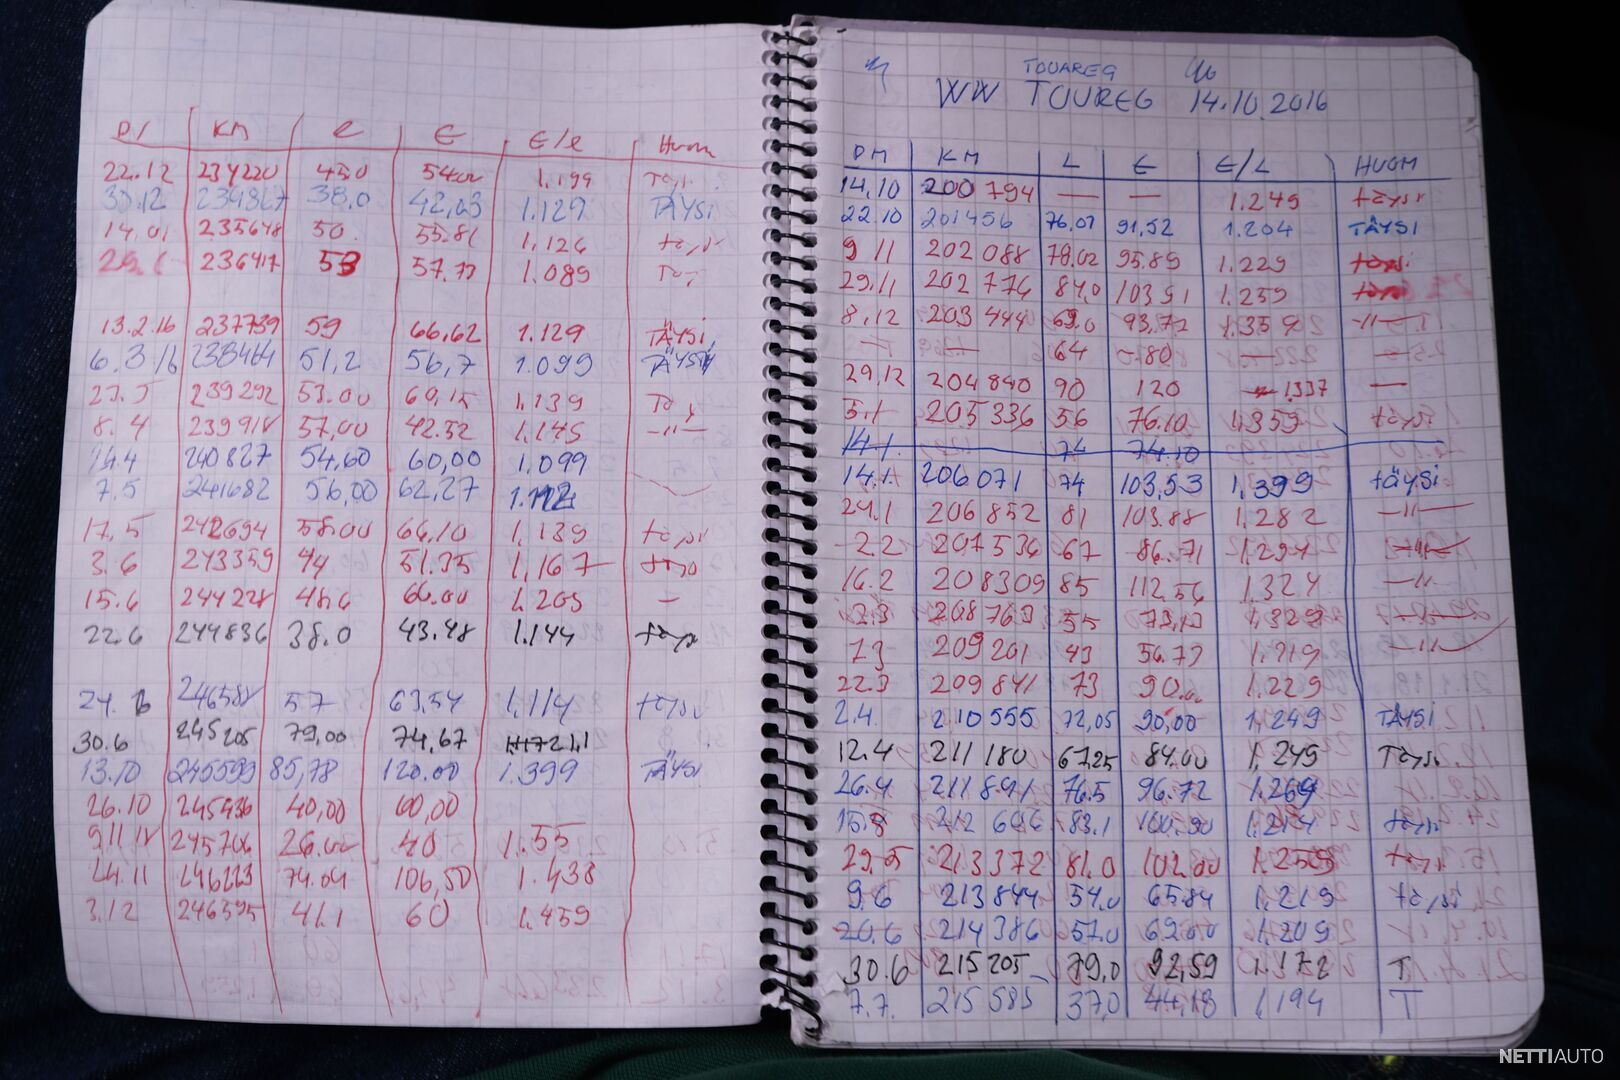 KM e € €/e Huom
22.12 234220 450 5400 1.199 Täysi
30.12 38,0 42,03 1.129 TÄYSI
14.01 235648 50. 55.81 1.126 täysi
236417 53 57.77 1.089
13.2.16 237739 59 66,62 1.129 TÄYSI
6.3 16 238464 51,2 56,7 1.099 TÄYSI
239292 53.00 60,15 1,139
8.4 239918 57,00 42.52 1,145 -"-
14.4 240827 54,60 60,00 1.099
7,5 241682 56,00 62,27
17,5 242694 58.00 66,10 1,139 täysi
3.6 243359 44 51.35 1,167
15.6 244228 48,6 60.00 1,205 -
22.6 244836 38.0 43.48 1.144 täysi
24.6 57 63,54 1,114 täysi
30.6 245205 79,00 74,67
13.10 245599 85,78 120.00 1.399 TÄYSI
26.10 245436 40,00 60,00
245706 26.00 40 1.55
14.11 246223 74.04 106,50 1.438
3.12 246595 41.1 60 1.459
TOUAREG
WW TOUREG 14.10.2016
PM KM L € €/L HUOM
14.10 200794 — — 1.249 täysi
22.10 201456 76,07 91,52 1.204 TÄYSI
9 11 202088 78,02 95.89 1.229 täysi
29.11 202776 84,0 103 91 1.259
8.12 203444 69.0 93,72 1.359 -"-
— — 64 80 — —
29.12 204840 90 120 1337 —
5.1 205336 56 76.10 1,359 täysi
14.1. 74 74.10
14.1. 206071 74 103,53 1,399 täysi
29.1 206852 81 103.88 1,282 -"-
2.2 207536 67 86.71 1,294
16.2 208309 85 112.56 1,324 -"-
2.3 208763 55 73,10 1,329
7.3 209201 43 56.73 1,319 -"-
22.3 209841 73 90.- 1.229
2.4. 210555 72,05 90,00 1,249 TÄYSI
12.4 211180 67.25 84.00 1,249 Täysi
26.4 211891 76.5 96.72 1.269
212606 83.1 100.90 1.214 täysi
29.5 213372 81.0 102.00 1.259 täysi
9.6 213844 54.0 65.84 1.219 täysi
20.6 214386 57.0 69.00 1.209
30.6 215205 79,0 92,59 1.172 T
7.7. 215585 37,0 44,18 1,194 T
NETTIAUTO